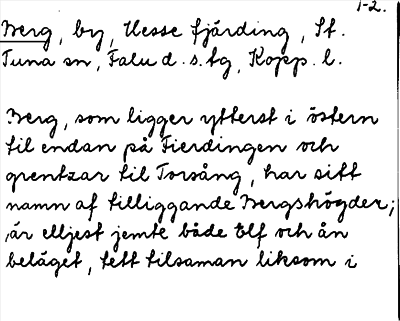 1-2.
Berg, by, Hesse fjärding, St.
Tuna sn, Falu d.s.tg, Kopp.l.
Berg, som ligger ytterst i östern
til endan på Fierdingen och
grentzar til Torsång, har sitt
namn af tilliggande Bergshögder;
är elljest jemte både Elf och ån
beläget, tett tilsaman liksom i